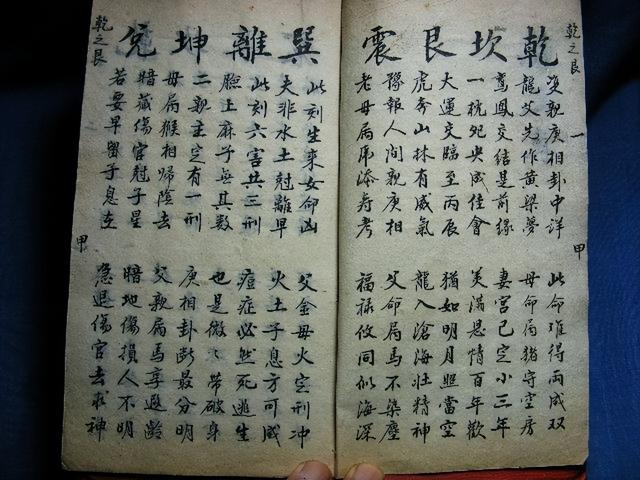 乾之艮 一 甲
乾坎艮震
雙親庚相卦中詳 此命难得両成双
龍父先作黄梁夢 母命屬猪守空房
鸾鳳交結是前缘 妻宮已定小三年
一枕央成佳會 美滿恩情百年歡
大運交臨至丙辰 猶如明月照當空
虎奔山林有威氣 龍入滄海壮精神
豫報人间親庚相 父命屬馬不染塵
老母屬添寿考 福禄攸同似海深
巽離坤兌
此刻生来女命凶 父金母火定刑冲
夫非水土尅離早 火土子息方可成
此刻六害共三刑 痘症必然死逃生
臉上麻子無其數 也是微々帶破身
二親主定有一刑 庚相卦断最分明
母屬猴相歸陰去 父親屬馬享遐齡
暗藏傷官尅子星 暗地傷損人不明
若要早留子息在 急退傷官去求神
乾之艮 甲